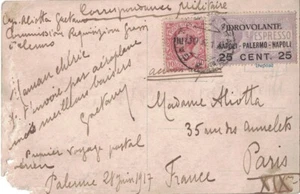 Correspondance militaire
Cap. Aliotta Gaetano
Commission Requisizion
Palerme
IDROVOLANTE
ESPRESSO
NAPOLI - PALERMO - NAPOLI
25 CENT. 25
Maman chérie
J'envoie par aéroplane
mes meilleurs baisers
Gaetano
Madame Aliotta
35 rue des Annelets
Paris
XIX
France
Premier voyage postal
aérien
Palerme 28 juin 1917